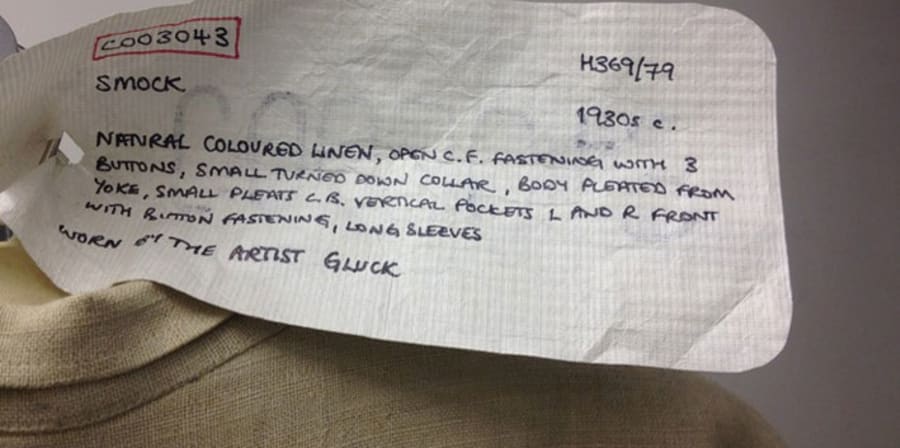 C003043
H369/79
SMOCK
1930s c.
NATURAL COLOURED LINEN, OPEN C.F. FASTENING WITH 3
BUTTONS, SMALL TURNED DOWN COLLAR, BODY PLEATED FROM
YOKE, SMALL PLEATS C.B. VERTICAL POCKETS L AND R FRONT
WITH BUTTON FASTENING, LONG SLEEVES
WORN BY THE ARTIST GLUCK